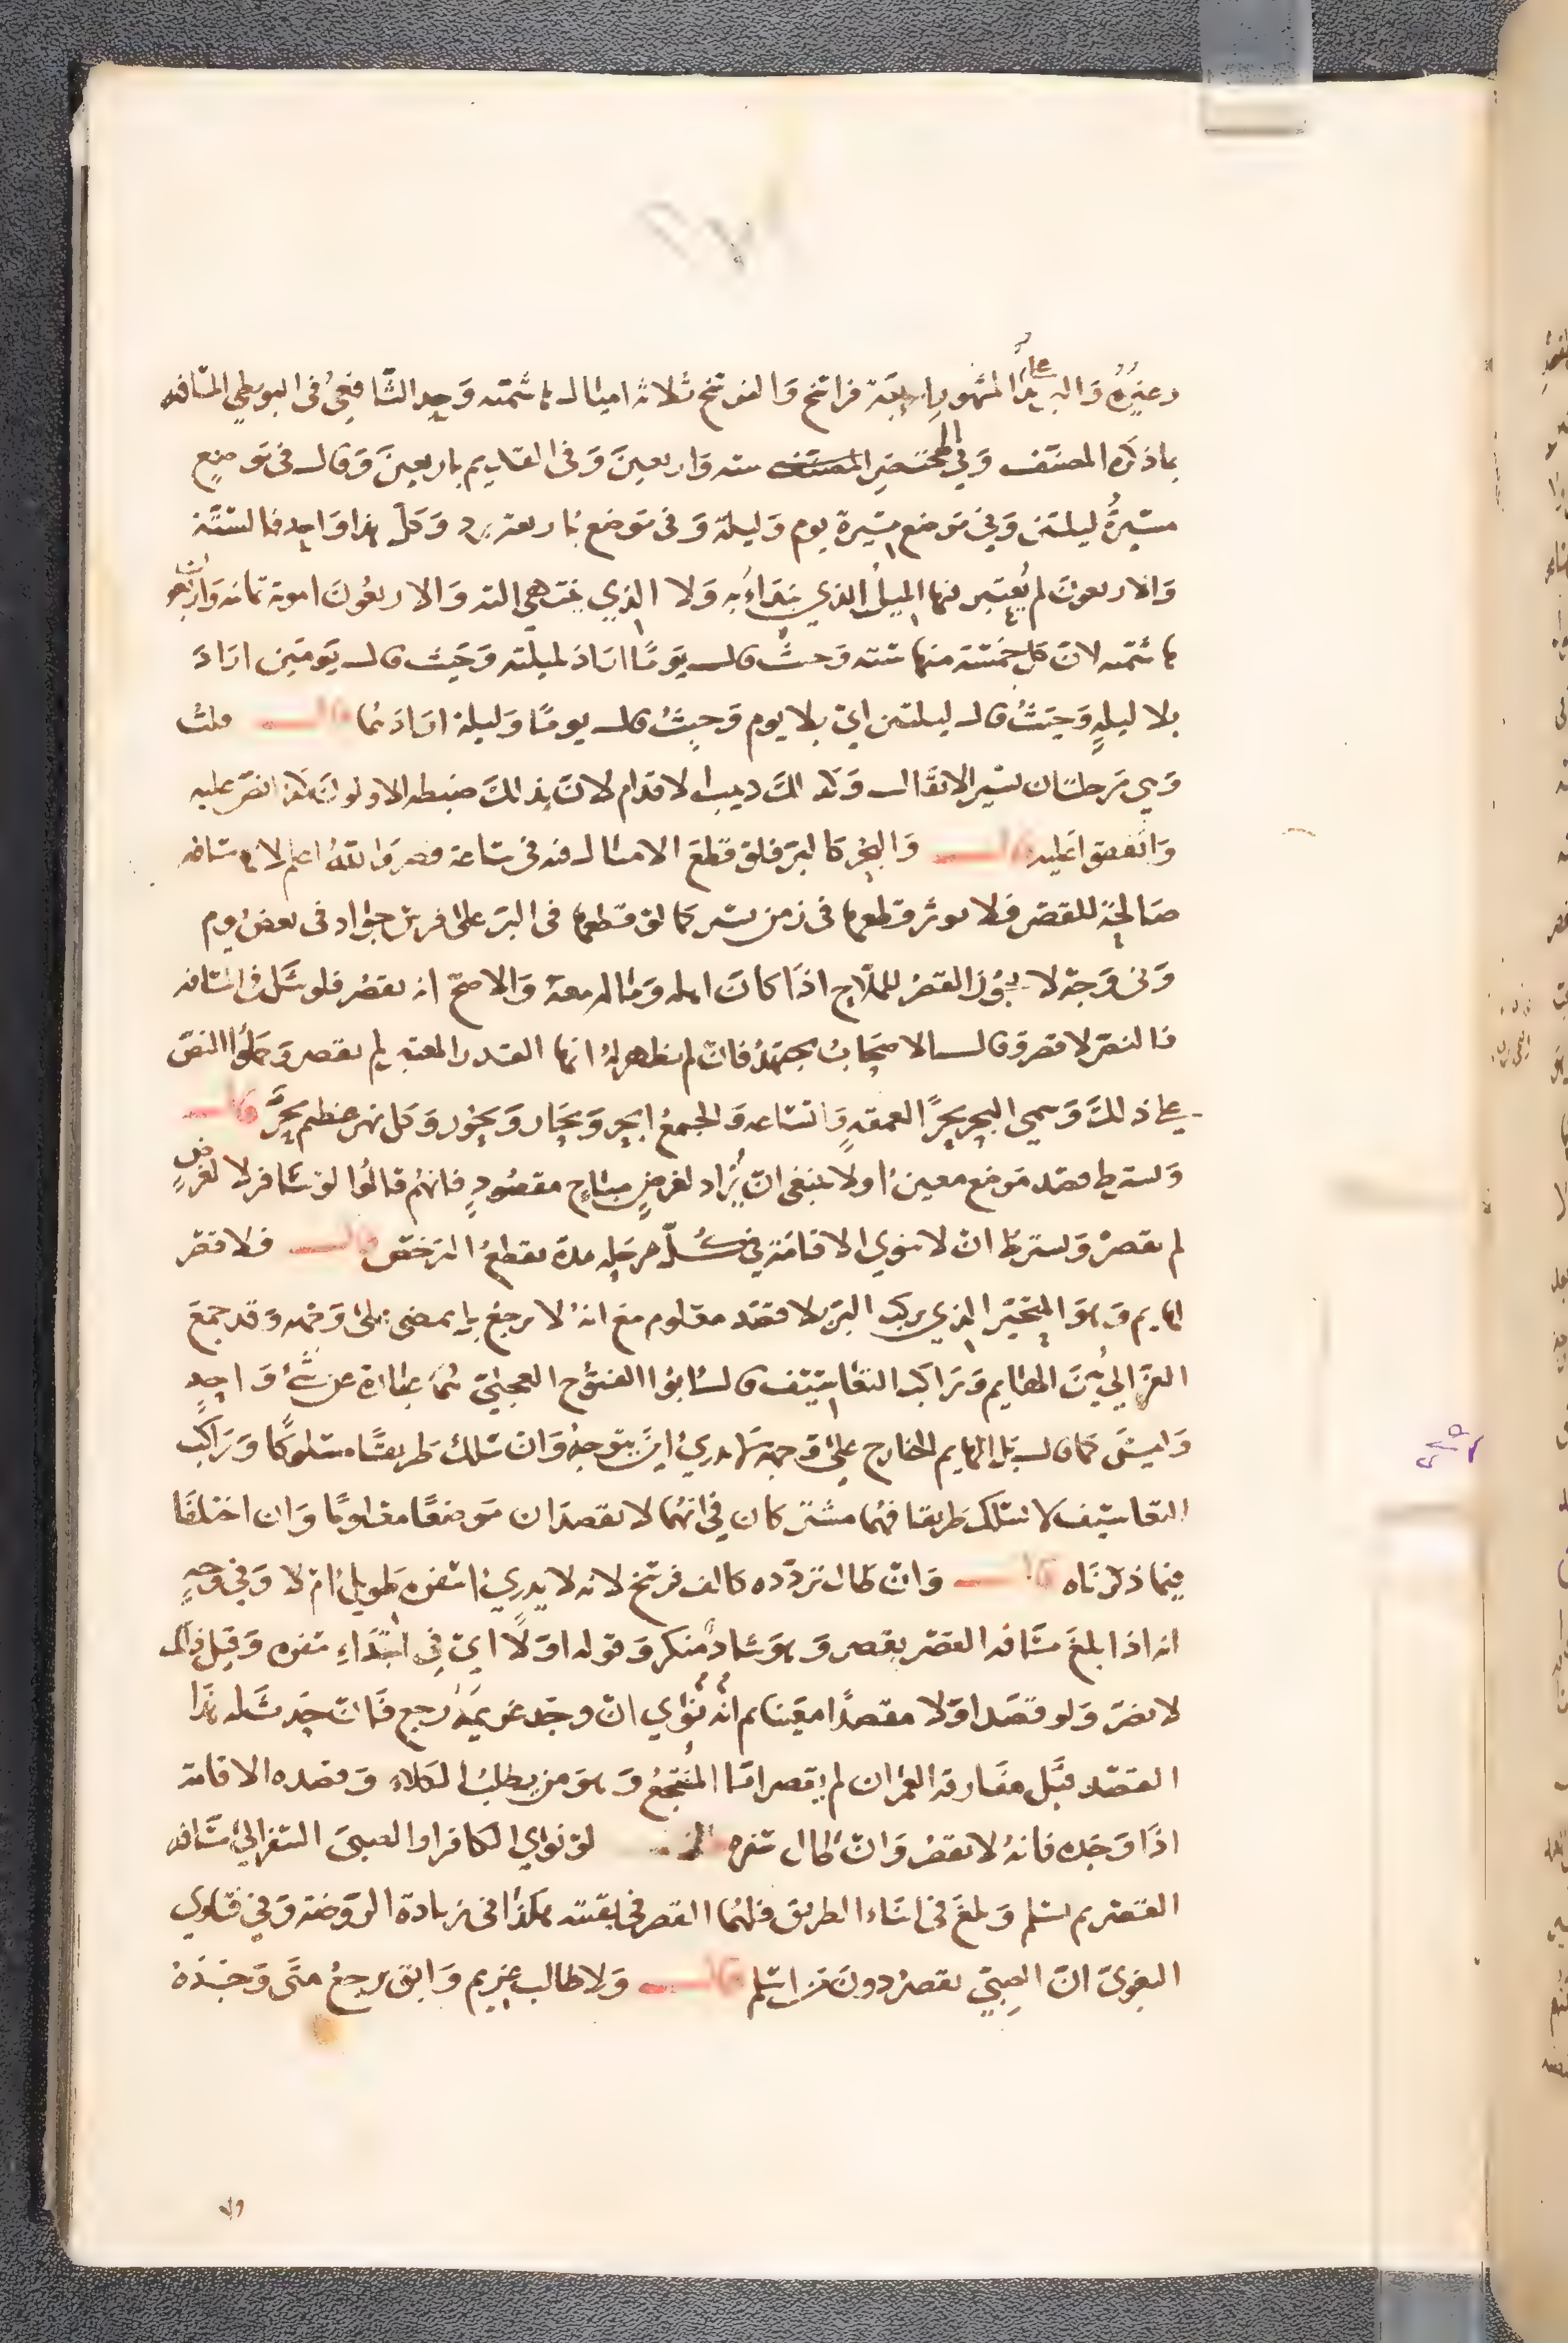 وغيره والبريد على المشهور اربعة فراسخ والفرسخ ثلاثة اميال هاشمية وحد الشافعي في البويطي المسافة
بما ذكره المصنف وفي المختصر ستة واربعين وفي القديم باربعين وقال في موضع
مسيرة ليلتين وفي موضع مسيرة يوم وليلة وفي موضع باربعة برد وكل هذا واحد فالستة
والاربعون لم يعتبر فيها الميل الذي يبتداء به ولا الذي ينتهي اليه والاربعون اموية ثمانية واربعون
هاشمية لان كل خمسة منها ستة وحيث قال يوما اراد بليلته وحيث قال يومين اراد
بلا ليلة وحيث قال ليلتين اي بلا يوم وحيث قال يوما وليلة ارادهما قال قلت
وهي مرحلتان بسير الاثقال وكذلك دبيب الاقدام لان بذلك ضبطه الاولون هكذا نص عليه
واتفقوا عليه قال والبحر كالبر فلو قطع الاميال فيه في ساعة قصر والله اعلم لانها مسافة
صالحة للقصر فلا يوثر قطعها في زمن يسير كما لو قطعها في البر على فرس جواد في بعض يوم
وفي وجه لا يجوز القصر للملاح اذا كان اهله وماله معه والاصح انه يقصر فلو شك في المسافة
فالنص لا قصر وقال الاصحاب يجتهد فان لم يظهر له انها القدر المعتبر لم يقصر وحملوا النص
على ذلك وسمي البحر بحرا لعمقه واتساعه والجمع ابحر وبحار وبحور وكل نهر عظيم بحر قال
ويشترط قصد موضع معين اولا ينبغي ان يزاد لغرض مباح مقصود فانهم قالوا لو سافر لا لغرض
لم يقصر ويشترط ان لا ينوي الاقامة في كل مرحلة مدة يقطع الترخص قال فلا قصر
لهايم وهو المتحير الذي يركب البر بلا قصد معلوم مع انه لا يرجع بل يمضي على وجهه وقد جمع
الغزالي بين الهايم وراكب التعاسيف قال ابوا الفتوح العجلي هما عبارة عن شئ واحد
وليس كما قال بل الهايم الخارج على وجهه لا يدري اين يتوجه وان سلك طريقا مسلوكا وراكب
التعاسيف لا يسلك طريقا فهما مشتركان في انهما لا يقصدان موضعا معلوما وان اختلفا
فيما ذكرناه قال وان طال تردده كالف فرسخ لانه لا يدري اسفره طويل ام لا وفي وجه
انه اذا بلغ مسافة القصر يقصر وهو شاد منكر وقوله اولا اي في ابتداء سفره وقيل ذلك
لا يضر ولو قصد اولا مقصدا معينا ثم انه نواي ان وجد غريمه رجع فان حدث له هذا
القصد قبل مفارقة العمران لم يقصر اما المنتجع وهو من يطلب الكلاء وقصده الاقامة
اذا وجده فانه لا يقصر وان طال سفره لو نواي الكافر او الصبي السفر الى مسافة
القصر ثم اسلم وبلغ في اثناء الطريق فلهما القصر في بقيته هكذا في زيادة الروضة وفي فتاوي
البغوي ان الصبي يقصر دون من اسلم قال ولا طالب غريم وابق يرجع متى وجده